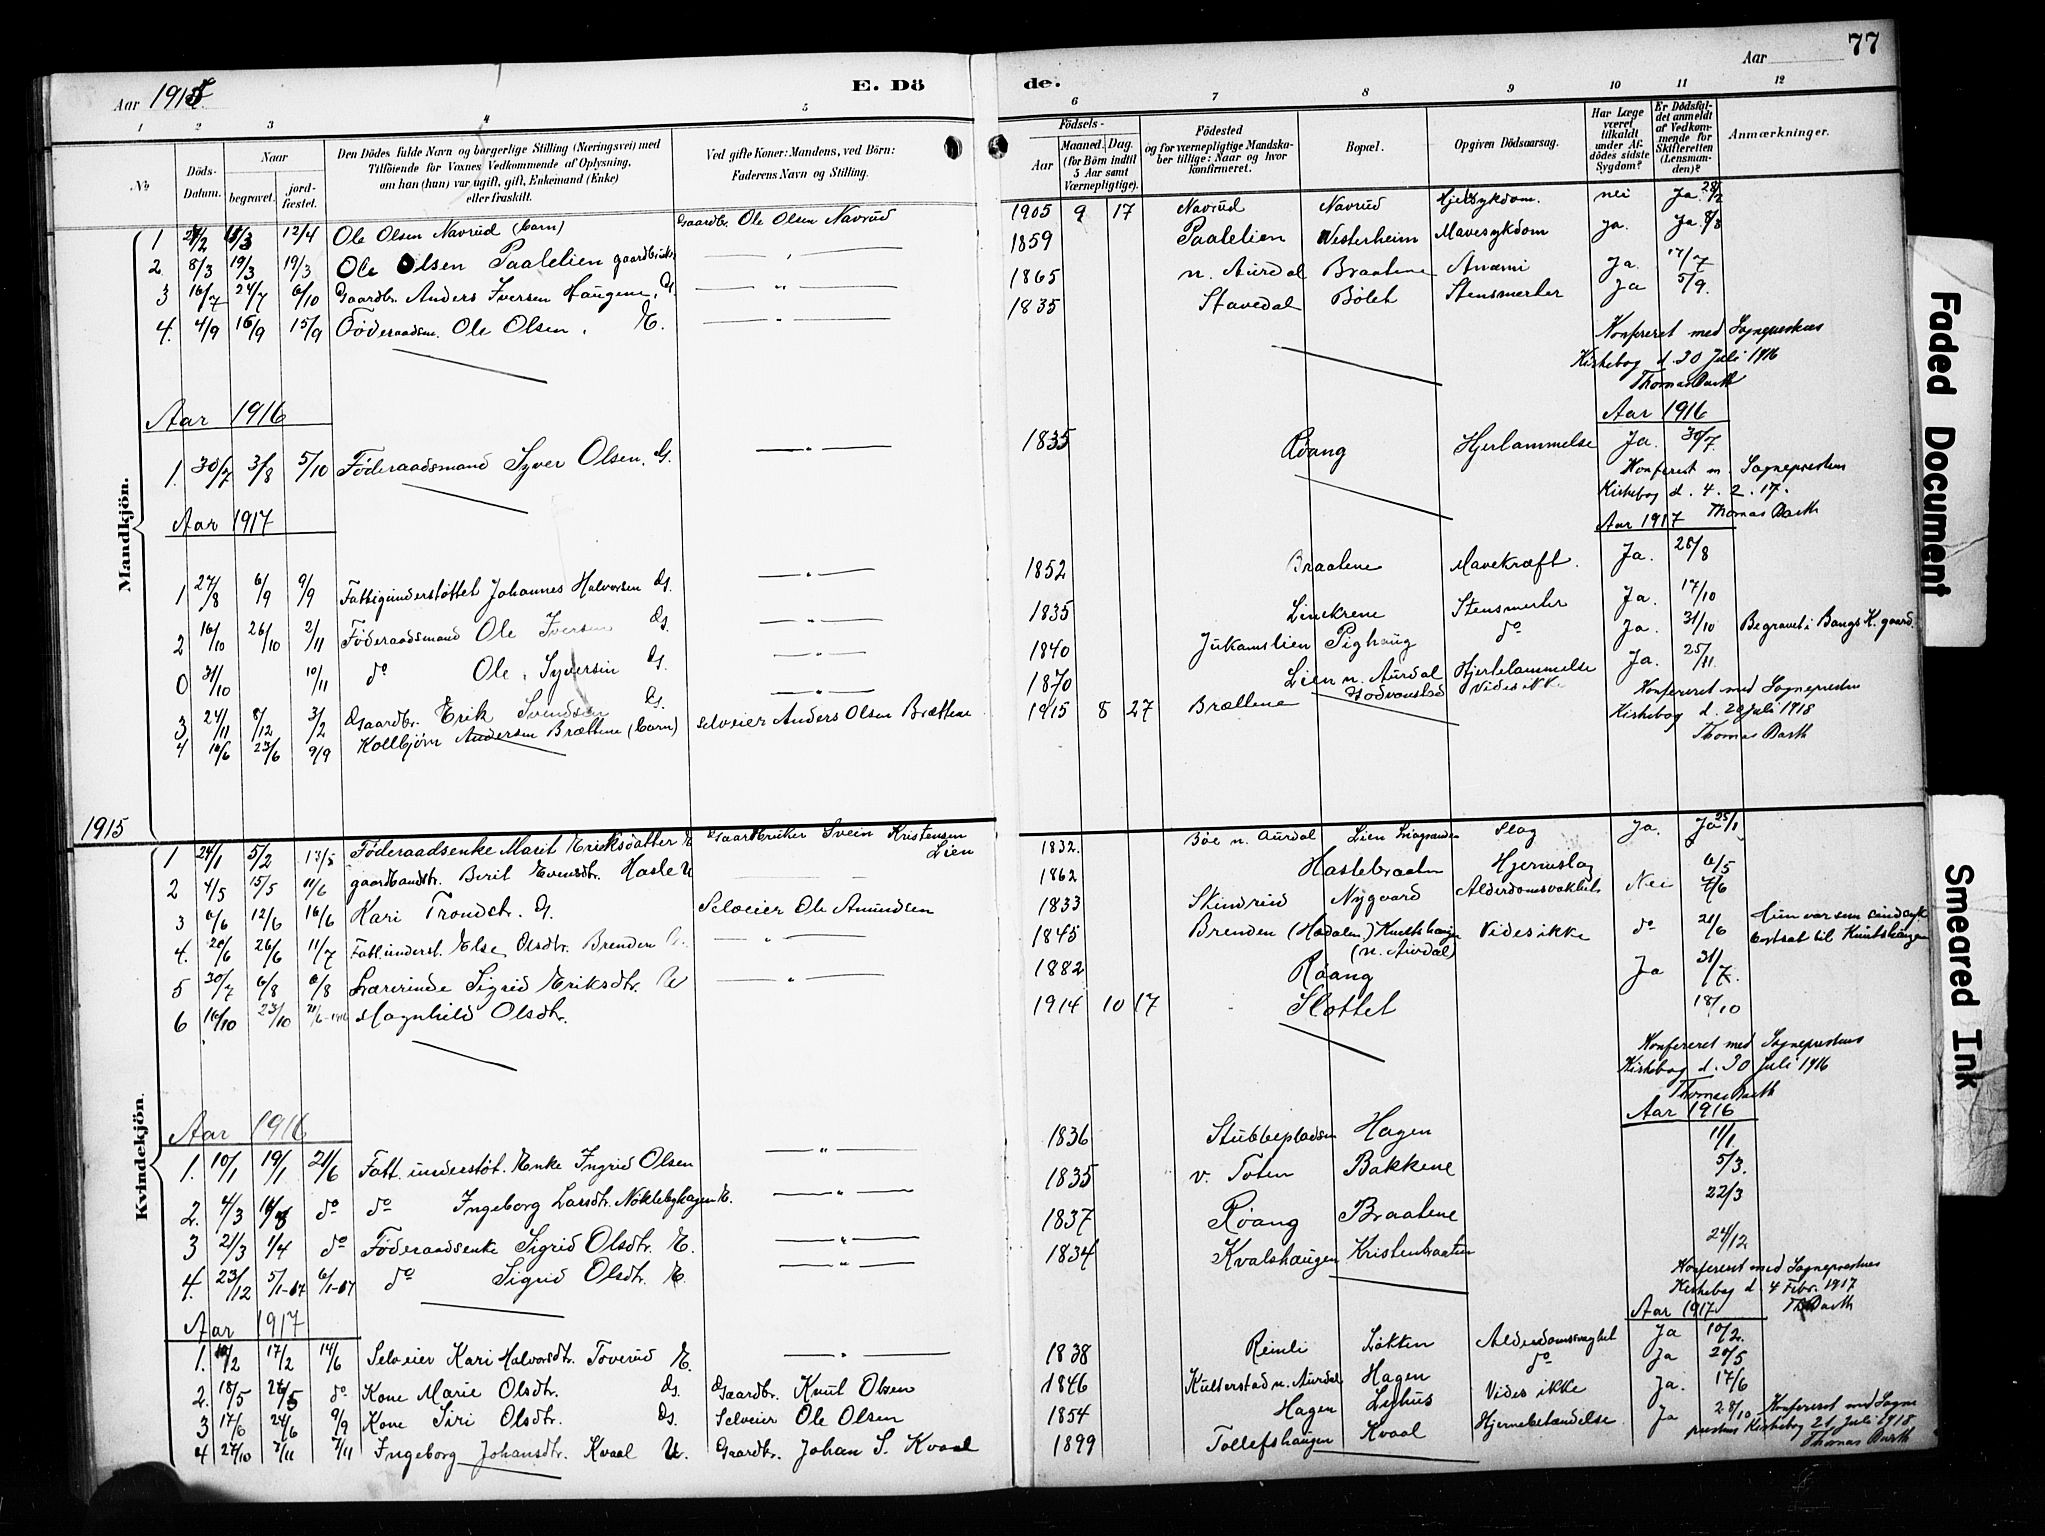 77
Aar 1915
E. Döde.
Aar
1 2 3 4 5 6 7 8 9 10 11 12
No
Döds-Datum.
Naar
begravet.
jordfæstet.
Den Dödes fulde Navn og borgerlige Stilling (Næringsvei) med
Tilföiende for Voxnes Vedkommende af Oplysning,
om han (hun) var ugift, gift, Enkemand (Enke)
eller fraskilt.
Ved gifte Koner: Mandens, ved Börn:
Faderens Navn og Stilling.
Födsels-
Aar
Maaned. Dag.
(for Börn indtil
5 Aar samt
Værnepligtige).
Födested
og for værnepligtige Mandska-
ber tillige: Naar og hvor
konfirmeret.
Bopæl.
Opgiven Dödsaarsag.
Har Læge
været
tilkaldt
under Af-
dödes sidste
Sygdom?
Er Dödsfal-
det anmeldt
af Vedkom-
mende for
Skifteretten
(Lensman-
den)?
Anmærkninger.
Mandkjön.
1 12/4 Ole Olsen Navrud (barn) Gaardbr. Ole Olsen Navrud 1905 9 17 Navrud Navrud nei Ja 28/2
2. 8/3 19/3 19/3 Ole Olsen Paalelien gaardbruker 1859 Paalelien Westerheim Mavesykdom ja. Ja 8/3
3 16/7 24/7 6/10 Gaardbr. Anders Iversen Haugene, G. 1865 n. Aurdal Braatene Anæmi Ja. 17/7
4. 4/9 16/9 15/9 Föderaadsm. Ole Olsen. E. 1835 Stavedal Bölet Stensmerter Ja 5/9.
Konfereret med Sogneprestens
Kirkebog d. 30 Juli 1916
Thomas Barth
Aar 1916
Aar 1916
1. 30/7 3/8 5/10 Föderaadsmand Syver Olsen. G. 1835 Röang Hjertlammelse Ja. 30/7.
Konfereret m. Sogneprestens
Kirkebog d. 4. 2. 17.
Thomas Barth
Aar 1917
Aar 1917
1 27/8 6/9 9/9 Fattigunderstöttet Johannes Halvorsen G. 1852 Braatene Mavekræft. Ja. 28/8
2 16/10 26/10 2/11 Föderaadsmand Ole Iversen G. 1835 Linekrene Stensmerter Ja. 17/10
0 31/10 10/11 do Ole Syversen G. 1840 Jukamslien Pighaug do Ja. 31/10 Begravet i Bangs K. gaard.
3 24/11 8/12 3/2 Gaardbr. Erik Svendsen G. 1870 Lien n. Aurdal Hjertelammelse Ja. 25/11.
4 16/6 23/6 9/9 Kolbjörn Andersen Brættene (barn) Selveier Anders Olsen Brættene 1915 8 27 Brættene Vides ikke
Konfereret med Sogneprestens
Kirkebog d. 20 Juli 1918
Thomas Barth
1915
Kvindekjön.
1 24/1 5/2 13/5 Föderaadsenke Marit Eriksdatter E Gaardbruker Svein Kristensen Lien 1832. Böe n. Aurdal Lien Slag Ja. Ja 25/1
2 4/5 15/5 11/6 gaardmandsdtr. Berit Evensdtr. Hasle U 1862 Haslebraaten Hjerneslag 6/5
3 6/6 12/6 16/6 Kari Trondstr. G. Selveier Ole Amundsen 1833 Skindrud Nygaard Alderdomssvakhet Nei 7/6
4. 20/6 26/6 11/7 Fatt. underst. Else Olsdtr. Brenden 1845 Brenden (Hedalen) Knutshaugen (n. Aurdal) Vides ikke do 21/6 Hun var som sindssyk bortsat til Knutshaugen
5 30/7 6/8 6/8 Lærerinde Sigrid Eriksdtr. U 1882 Röang Ja 31/7.
6 16/10 23/10 21/6-1916 Magnhild Olsdtr. 1914 10 17 Slottet 18/10
Konfereret med Sogneprestens
Kirkebog d. 30 Juli 1916
Thomas Barth
Aar 1916
Aar 1916
1. 10/1 19/1 21/6 Fatt. understöt. Enke Ingrid Olsen 1836 Stubbepladsen Hagen 11/1.
2. 4/3 do do Ingeborg Larsdtr. Nöklebyhagen E. 1835 v. Toten Bakkene 5/3.
3 21/3 1/4 do Föderaadsenke Sigrid Olsdtr. E. 1837 Röang Braatene 22/3
4. 23/12 5/1-17 6/1-17 do Sigrid Olsdtr. E. 1834 Kvalshaugen Kristenbraaten 24/12
Konfereret med Sogneprestens
Kirkebog d. 4 Febr. 1917
Th Barth
Aar 1917
Aar 1917
1. 10/2 17/2 14/6 Selveier Kari Halvorsdtr. Toverud E. 1838 Reinli Lökken Alderdomssvaghet Ja 10/2.
2. 18/5 26/5 do. Kone Marie Olsdtr. G. Gaardbr. Knut Olsen 1846 Kulterstad n. Aurdal Hagen do Ja 20/5
3 17/6 24/6 9/9 Kone Siri Olsdtr. G. Selveier Ole Olsen 1854 Hagen Lyhus Vides ikke Ja. 17/6
4 27/10 7/11 7/11 Ingeborg Johansdtr. Kvaal U. Gaardbr. Johan S. Kvaal 1899 Tollefshaugen Kvaal Hjernebetændelse Ja 28/10
Konfereret med Sogne
prestens Kirkebog 21. Juli 1918
Thomas Barth
Faded Document
Smeared Ink